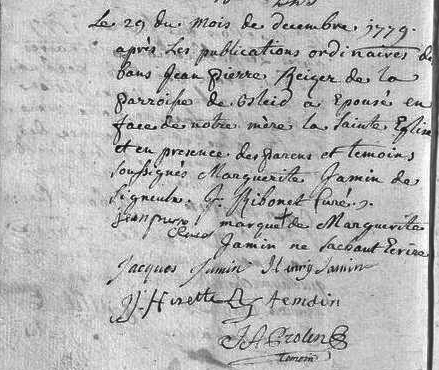 Le 29 du mois de decembre 1779.
après Les publications ordinaires de
bans Jean pierre Reiger de la
parroisse de osleid a Epousé en
face de notre mère la Sainte Eglise
et en presence des parens et temoins
soussignés Marguerite Jamin de
signeulx. J. Ribonet Curé.
jean pierre marque † de Marguerite
Jamin ne sachant Ecrire
Jacques Jamin Henry Jamin
Hirette temoin
temoin